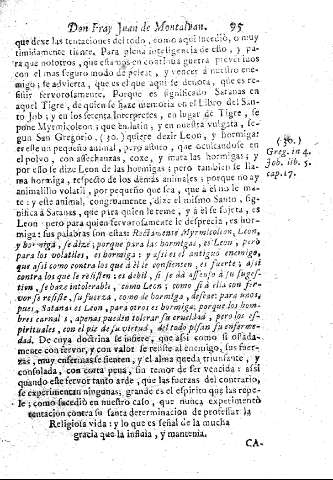 Don Fray Juan de Montalvan. 95
que dexe las tentaciones del todo, como aqui sucediò, o muy
timidamente ticare. Para plena inteligencia de esto, y pa-
ra que nosotros, que estamos en continua guerra prevenidos
con el mas seguro modo de pelear, y vencer à nuestro ene-
migo; se advierta, que es el que aqui se denota, que es re-
sistir fervorosamente. Porque es significado Satanàs en
aquel Tigre, de quien se haze memoria en el Libro del San-
to Job; y en los setenta Interpretes, en lugar de Tigre, se
pone Myrmicoleon; que en latin, y en nuestra vulgata, se-
gun San Gregorio. (30.) quiere dezir Leon, y hormiga:
por este un pequeño animal, pero astuto, que ocultandose en
el polvo, con assechanzas, coxe, y mata las hormigas; y
por esso se dize Leon de las hormigas; pero tambien se lla-
ma hormiga, respecto de los demàs animales; porque no ay
animalillo volatil, por pequeño que sea, que à èl no le ma-
te: y este animal, congruamente, dize el mismo Santo, sig-
nifica à Satanàs, que para quien le teme, y à èl se sujeta, es
Leon; pero para quien fervorosamente le desprecia, es hor-
miga: sus palabras son estas: Rectamente Myrmicoleon, Leon,
y hormiga, se dize; porque para las hormigas, es Leon; pero
para los volatiles, es hormiga: y assi es el antiguo enemigo,
que assi como contra los que à èl le consienten, es fuerte; assi
contra los que le resisten: es debil, si se dà assenso à su suges-
tion, se haze intolerable, como Leon; como si à ella con fer-
vor se resiste, su fuerza, como de hormiga, descae: para unos,
pues, Satanàs es Leon, para otros es hormiga; porque los hom-
bres carnales, apenas pueden tolerar su crueldad; pero los es-
pirituales, con el pie de su virtud, del todo pisan su enferme-
dad. De cuya doctrina se infiere, que assi como si osada-
mente con fervor, y con valor se resiste al enemigo, sus fuer-
zas, muy enfermas se sienten, y el alma queda triunfante, y
consolada, con corta pena, sin temor de ser vencida: assi
quando este fervor tanto arde, que las fuerzas del contrario,
se experimentan ningunas; grande es el espiritu que las repe-
le; como sucediò en nuestro caso, que nunca experimentò
tentacion contra su santa determinacion de professar la
Religiosa vida: y lo que es señal de la mucha
gracia que la influìa, y mantenia.
CA-
(30.)
Greg. in 4.
Job. lib. 5.
cap. 17.